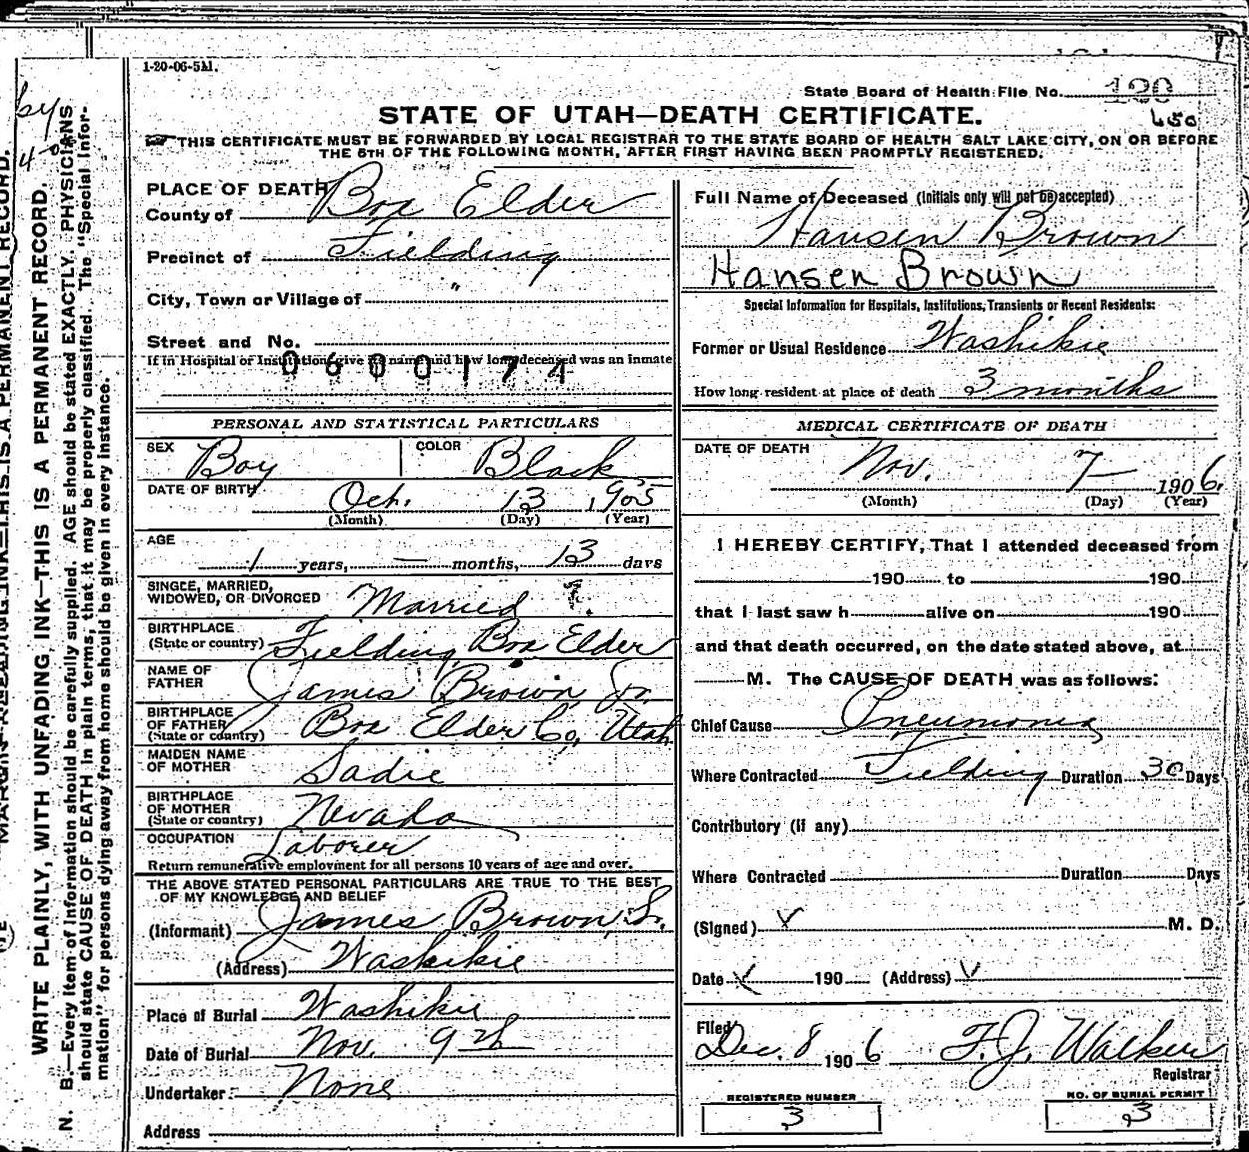 1-20-06-5M.
State Board of Health File No. 120
650
STATE OF UTAH—DEATH CERTIFICATE.
THIS CERTIFICATE MUST BE FORWARDED BY LOCAL REGISTRAR TO THE STATE BOARD OF HEALTH SALT LAKE CITY, ON OR BEFORE
THE 5TH OF THE FOLLOWING MONTH, AFTER FIRST HAVING BEEN PROMPTLY REGISTERED.
PLACE OF DEATH
County of Box Elder
Precinct of Fielding
City, Town or Village of "
Street and No.
If in Hospital or Institution, give its name and how long deceased was an inmate
0600174
Full Name of Deceased (Initials only will not be accepted)
Hansen Brown
Hansen Brown
Special Information for Hospitals, Institutions, Transients or Recent Residents:
Former or Usual Residence Washikie
How long resident at place of death 3 months
PERSONAL AND STATISTICAL PARTICULARS
SEX Boy COLOR Black
DATE OF BIRTH Oct. 13 1905
(Month) (Day) (Year)
AGE
1 years, — months, 13 days
SINGLE, MARRIED,
WIDOWED, OR DIVORCED Married ?.
BIRTHPLACE
(State or country) Fielding, Box Elder
NAME OF
FATHER James Brown Jr.
BIRTHPLACE
OF FATHER
(State or country) Box Elder Co, Utah
MAIDEN NAME
OF MOTHER Sadie
BIRTHPLACE
OF MOTHER
(State or country) Nevada
OCCUPATION Laborer
Return remunerative employment for all persons 10 years of age and over.
THE ABOVE STATED PERSONAL PARTICULARS ARE TRUE TO THE BEST
OF MY KNOWLEDGE AND BELIEF
(Informant) James Brown, S.
(Address) Washikie
Place of Burial Washikie
Date of Burial Nov. 9th
Undertaker None
Address
MEDICAL CERTIFICATE OF DEATH
DATE OF DEATH
Nov. 7 1906.
(Month) (Day) (Year)
I HEREBY CERTIFY, That I attended deceased from
190 to 190
that I last saw h alive on 190
and that death occurred, on the date stated above, at
M. The CAUSE OF DEATH was as follows:
Chief Cause Pneumonia
Where Contracted Fielding Duration 30 Days
Contributory (if any)
Where Contracted Duration Days
(Signed) M. D.
Date 190 (Address)
Filed
Dec. 8 1906 F. J. Walker
Registrar
REGISTERED NUMBER
3
NO. OF BURIAL PERMIT
3
WRITE PLAINLY, WITH UNFADING INK—THIS IS A PERMANENT RECORD.
N. B.—Every item of information should be carefully supplied. AGE should be stated EXACTLY. PHYSICIANS
should state CAUSE OF DEATH in plain terms, that it may be properly classified. The "Special Infor-
mation" for persons dying away from home should be given in every instance.